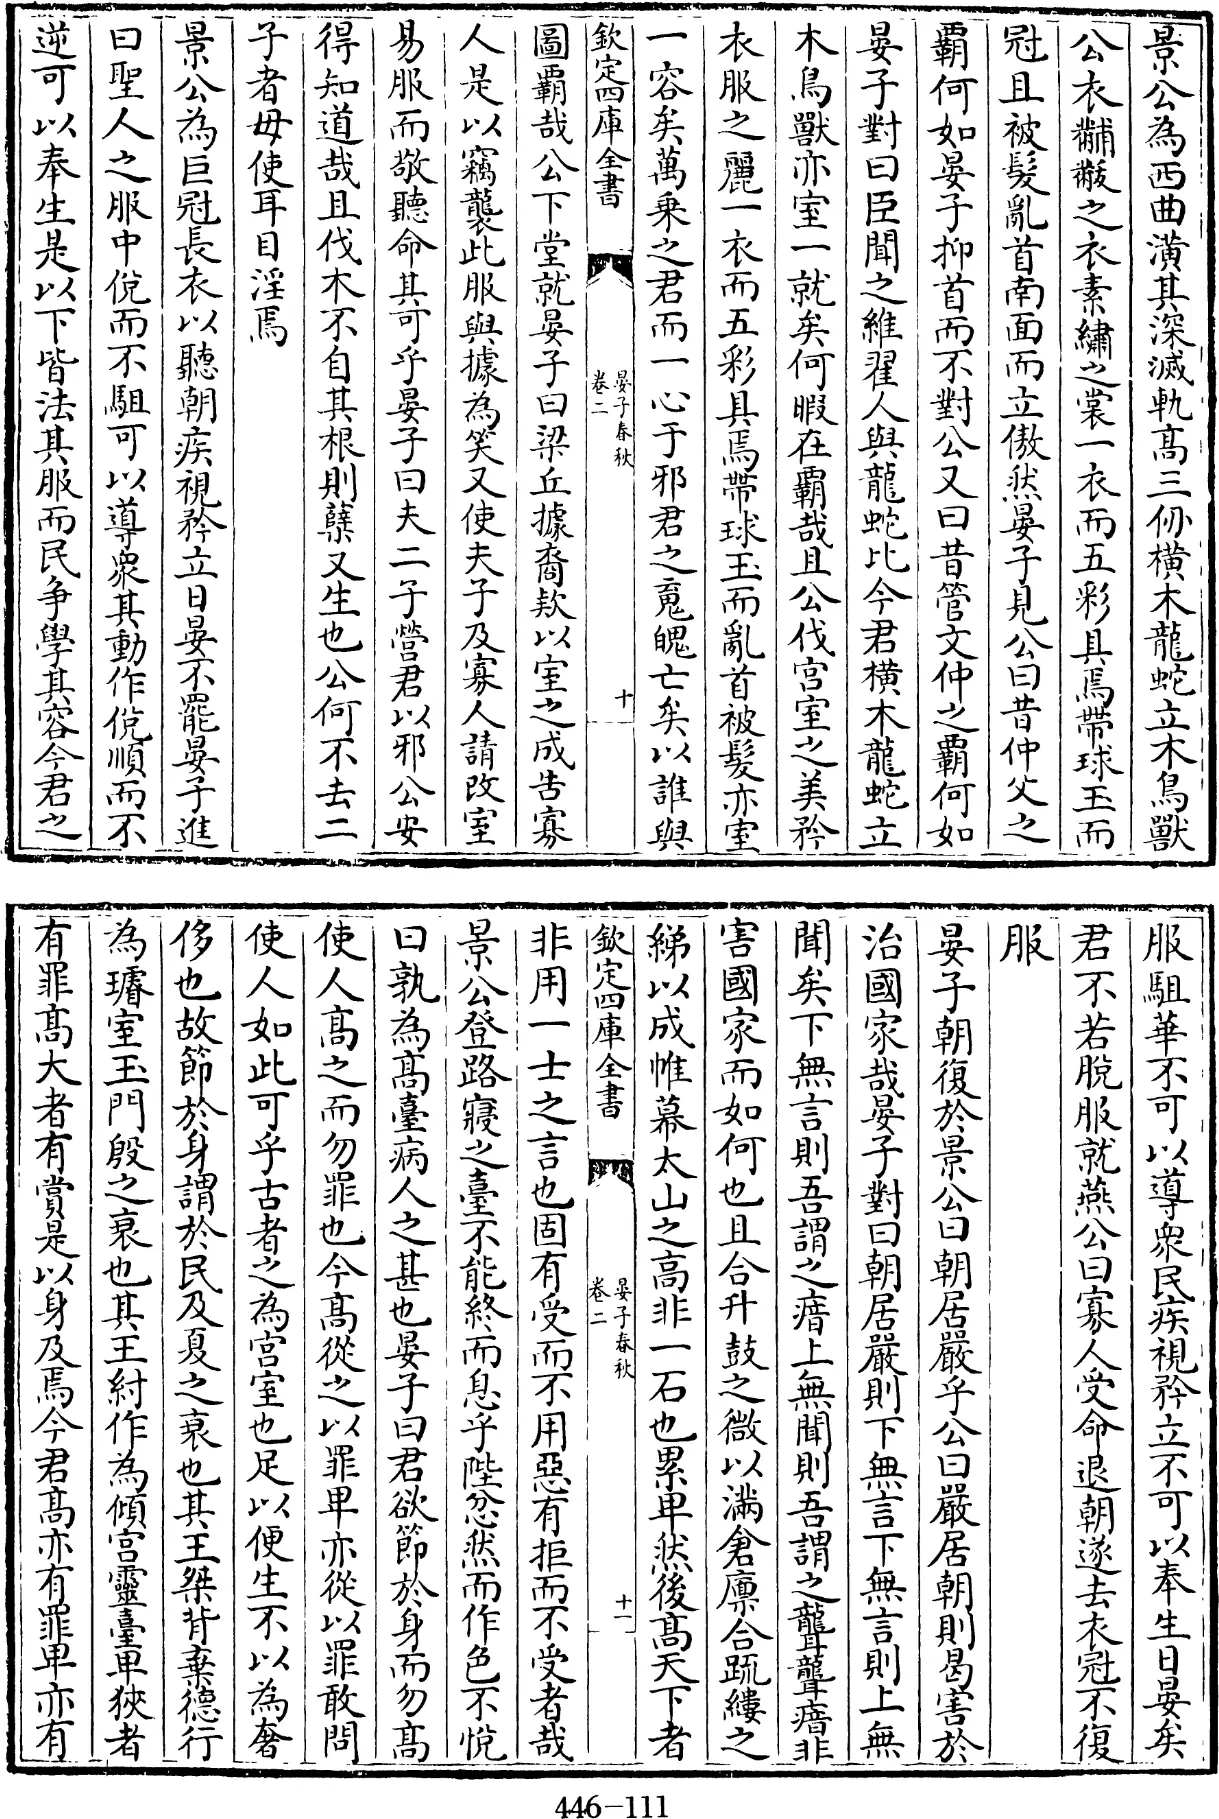 景公為西曲潢其深滅軌髙三仞横木龍蛇立木鳥獸
公衣黼黻之衣素繡之裳一衣而五彩具焉帶球玉而
冠且被髮亂首南面而立傲然晏子見公曰昔仲父之
霸何如晏子抑首而不對公又曰昔管文仲之霸何如
晏子對曰臣聞之維翟人與龍蛇比今君横木龍蛇立
木鳥獸亦室一就矣何暇在霸哉且公伐宫室之美矜
衣服之麗一衣而五彩具焉帶球玉而亂首被髮亦室
一容矣萬乗之君而一心于邪君之䰟魄亡矣以誰與
欽定四庫全書
晏子春秋
卷二
十
圖霸哉公下堂就晏子曰梁丘據裔欵以室之成告寡
人是以竊襲此服與據為笑又使夫子及寡人請改室
易服而敬聽命其可乎晏子曰夫二子營君以邪公安
得知道哉且伐木不自其根則蘖又生也公何不去二
子者毋使耳目淫焉
景公為巨冠長衣以聽朝疾視矜立日晏不罷晏子進
曰聖人之服中侻而不駔可以導衆其動作侻順而不
逆可以奉生是以下皆法其服而民争學其容今君之
服駔華不可以導衆民疾視矜立不可以奉生日晏矣
君不若脱服就燕公曰寡人受命退朝遂去衣冠不復
服
晏子朝復於景公曰朝居嚴乎公曰嚴居朝則曷害於
治國家哉晏子對曰朝居嚴則下無言下無言則上無
聞矣下無言則吾謂之瘖上無聞則吾謂之聾聾瘖非
害國家而如何也且合升鼓之微以滿倉廪合疏縷之
綈以成帷幕太山之高非一石也累卑然後髙天下者
欽定四庫全書
晏子春秋
卷二
十一
非用一士之言也固有受而不用惡有拒而不受者哉
景公登路寢之臺不能終而息乎陛忿然而作色不悦
曰孰為髙臺病人之甚也晏子曰君欲節於身而勿髙
使人髙之而勿罪也今髙從之以罪卑亦從以罪敢問
使人如此可乎古者之為宫室也足以便生不以為奢
侈也故節於身謂於民及夏之衰也其王桀背棄德行
為璿室玉門殷之衰也其王紂作為傾宫靈臺卑狹者
有罪髙大者有賞是以身及焉今君髙亦有罪卑亦有
446-111